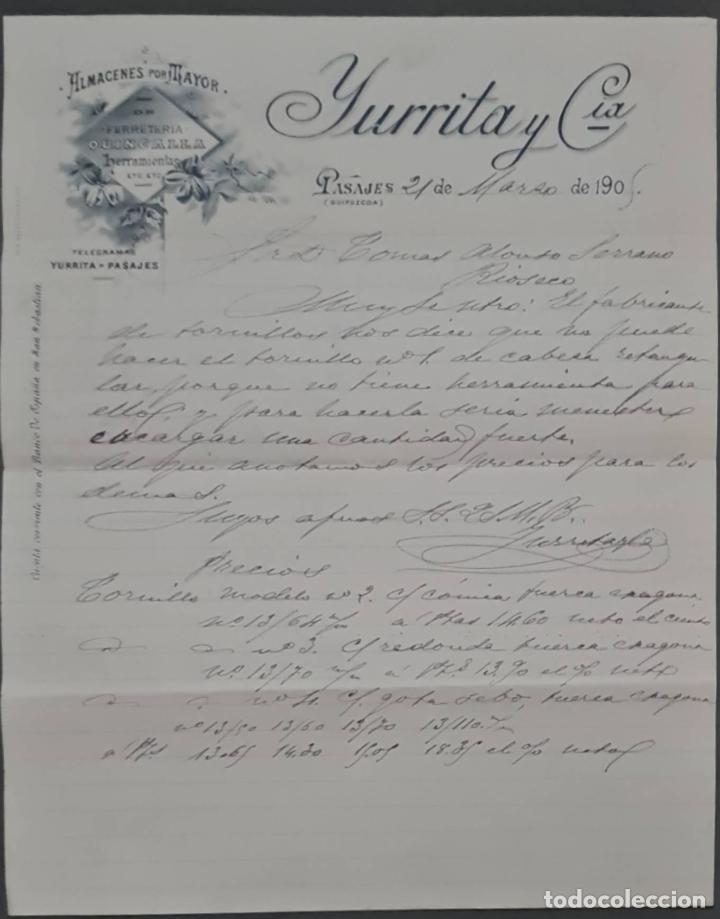 ALMACENES POR MAYOR
DE
FERRETERIA
QUINCALLA
herramientas
ETC. ETC.
TELEGRAMAS
YURRITA - PASAJES
Yurrita y Cía
PASAJES 21 de Marzo de 1905.
(GUIPÚZCOA)
Cuenta corriente con el Banco De España en San Sebastian.
Sr. D. Tomas Alonso Serrano
Rioseco
Muy Sr. ntro: El fabricante
de tornillos nos dice que no puede
hacer el tornillo nº 1. de cabesa retangu
lar, porque no tiene herramienta para
ello, y para hacerla seria menester
encargar una cantidad fuerte.
Al pie anotamos los precios para los
demas.
Suyos afmos S.S. Q.S.M.B.
Yurrita y Cia
Precios
Tornillo modelo nº 2. c/ cónica tuerca exagona
nº 13/64 m/m a Ptas 14.60 neto el ciento
" " nº 3. c/ redonda tuerca exagona
nº 13/70 m/m á Pts 13.90 el % neto
" " nº 4. c/ gota sebo, tuerca exagona
nº 13/50 13/60 13/70 13/110 m/m
a Pts 13.65 14.30 15.05 18.35 el % neto